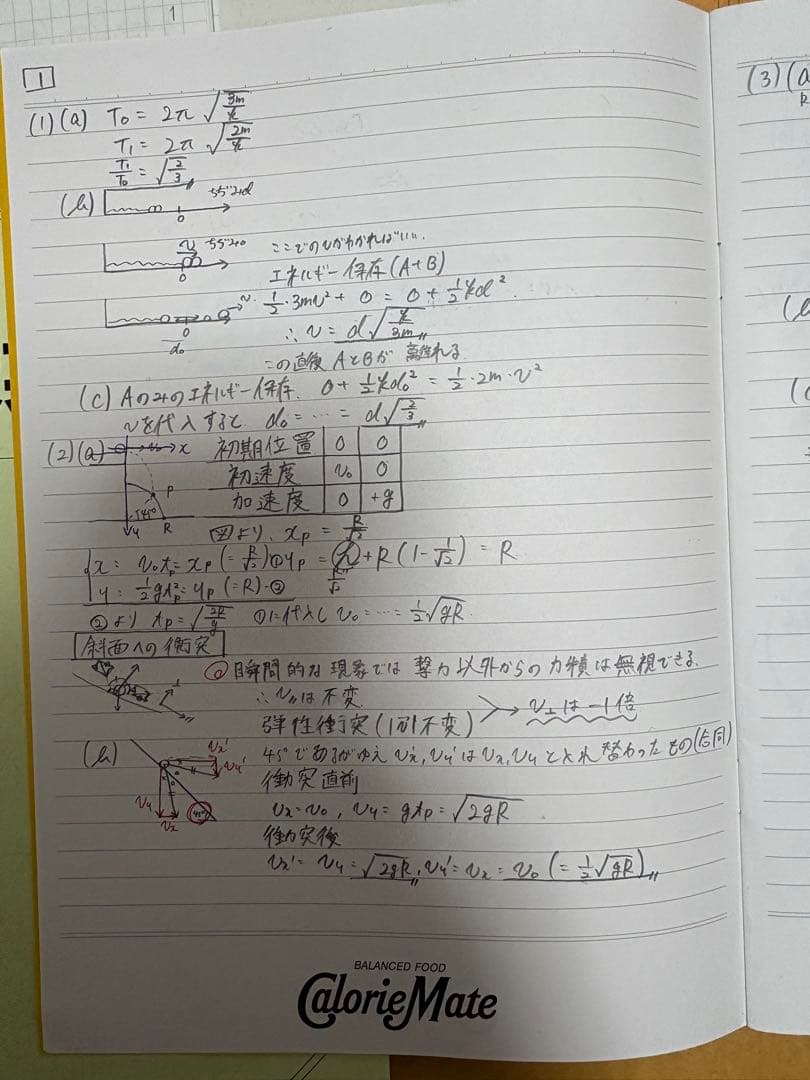 1
1
(1)(a) T₀ = 2π√(3m/k)
T₁ = 2π√(2m/k)
T₁/T₀ = √(2/3)
(b)
0
v
0
ここでのvがわかればいい.
エネルギー保存(A+B)
v
0
d₀
1/2・3mv² + 0 = 0 + 1/2kd²
∴ v = d√(k/3m)
この直後 AとBが離れる
(c) Aのみのエネルギー保存. 0 + 1/2kd₀² = 1/2・2m・v²
vを代入すると d₀ = … = d√(2/3)
(2)(a)
v₀ x
P
45°
y R
初期位置 0 0
初速度 v₀ 0
加速度 0 +g
図より、xp = R/√2
x: v₀tp = xp (= R/√2)① yp = h + R(1-1/√2) = R
R/√2
y: 1/2gtp² = yp (=R)-②
②より tp = √(2R/g) ①に代入し v₀ = … = 1/2√gR
斜面への衝突
瞬間的な現象では撃力以外からの力積は無視できる.
∴ v∥は不変
弾性衝突(|v|不変)
→ v⊥は-1倍
(b)
vx'
vy'
vy
vx
45°
45°であるがゆえ vx', vy'はvx, vyと入れ替わったもの(合同)
衝突直前
vx = v₀, vy = gtp = √2gR
衝突後
vx' = vy = √2gR, vy' = vx = v₀ (= 1/2√gR)
BALANCED FOOD
CalorieMate
(3)(a